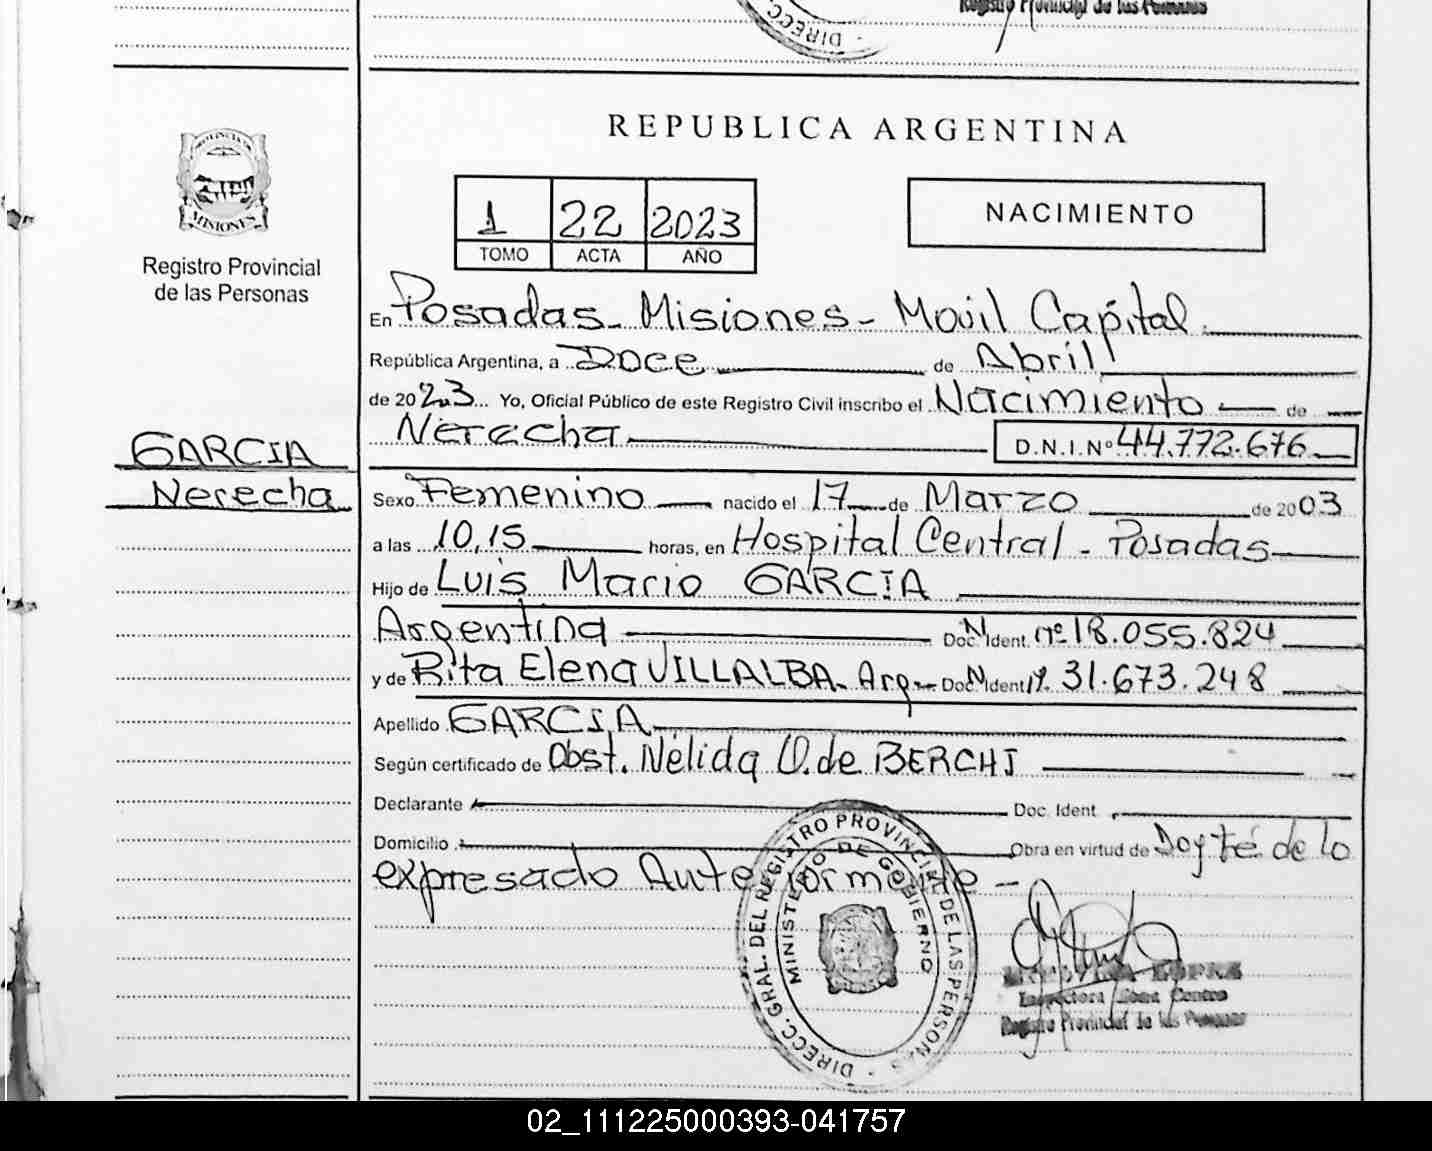 Registro Provincial de las Personas
DIRECC.
PROVINCIA DE
MISIONES
Registro Provincial
de las Personas
GARCIA
Nerecha
REPUBLICA ARGENTINA
1 22 2023
TOMO ACTA AÑO
NACIMIENTO
En Posadas - Misiones - Movil Capital
República Argentina, a Doce de Abril
de 2023 Yo, Oficial Público de este Registro Civil inscribo el Nacimiento de
Nerecha D.N.I.Nº 44.772.676
Sexo Femenino nacido el 17 de Marzo de 2003
a las 10,15 horas, en Hospital Central - Posadas
Hijo de Luis Mario GARCIA
Argentina Doc. Ident. Nº 18.055.824
y de Rita Elena VILLALBA - Arg - Doc. Ident Nº 31.673.248
Apellido GARCIA
Según certificado de Obst. Nélida O. de BERCHI
Declarante Doc. Ident.
Domicilio Obra en virtud de Doy fé de lo
expresado Anteriormente -
DIRECC. GRAL. DEL REGISTRO PROVINCIAL DE LAS PERSONAS
MINISTERIO DE GOBIERNO
Registro Provincial de las Personas
02_111225000393-041757